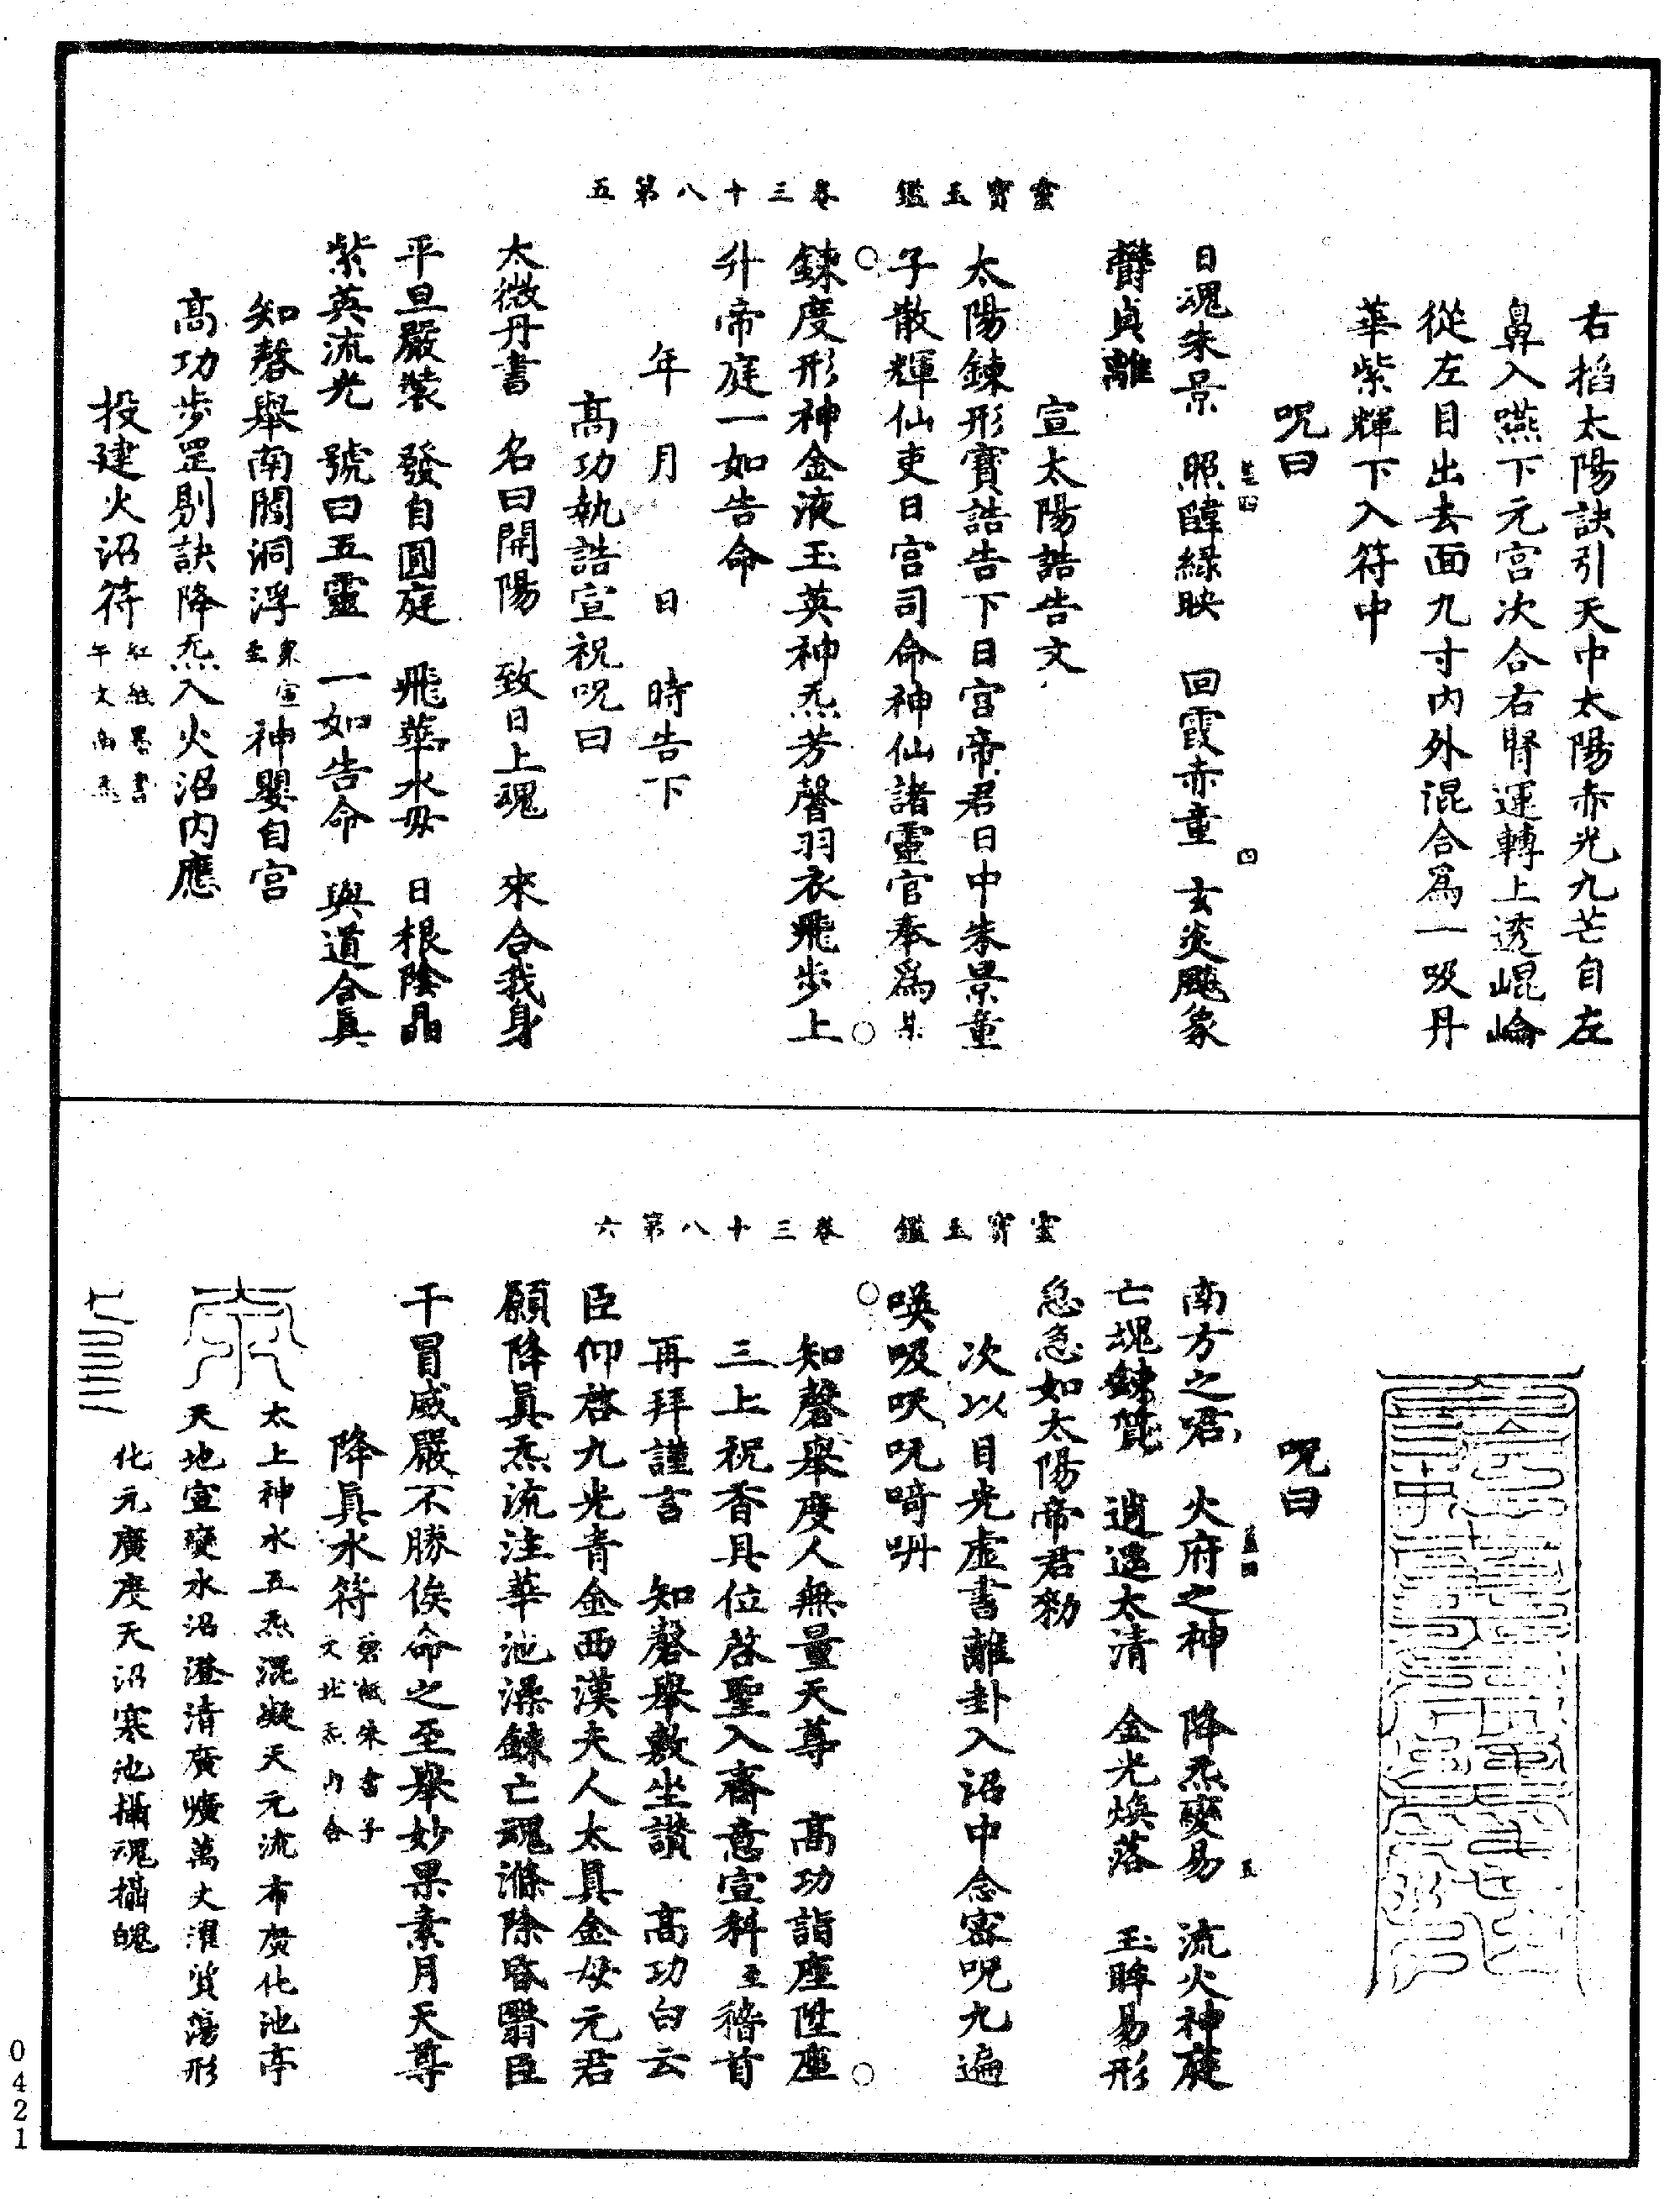 靈寶玉鑑　卷三十八第五
右搯太陽訣引天中太陽赤光九芒自左
鼻入嚥下元宮次合右腎運轉上透崐崘
從左目出去面九寸內外混合爲一吸丹
華紫輝下入符中
呪曰
日魂朱景　照韜綠映　回霞赤童　玄炎飈象
欝貞離
宣太陽誥告文
太陽鍊形寶誥告下日宮帝君日中朱景童
子散輝仙吏日宮司命神仙諸靈官奉爲某
鍊度形神金液玉英神炁芳馨羽衣飛步上
升帝庭一如告命
年　月　日　時告下
高功執誥宣祝呪曰
太微丹書　名曰開陽　致日上魂　來合我身
平旦嚴裝　發自圓庭　飛華水母　日根陰晶
紫英流光　號曰五靈　一如告命　與道合眞
知磬舉南閣洞浮衆宣至神嬰自宮
高功步罡剔訣降炁入火沼內應
投建火沼符紅紙墨書午文南炁
靈寶玉鑑　卷三十八第六
呪曰
南方之君　火府之神　降炁變易　流火神庭
亡魂鍊質　逍遥太清　金光煥落　玉眸易形
急急如太陽帝君勑
次以目光虛書離卦入沼中念密呪九遍
㗲吸呎呪㗁呥
知磬舉度人無量天尊　高功詣座陞座
三上祝香具位啓聖入齋意宣科至稽首
再拜謹言　知磬舉敷坐讚　高功白云
臣仰啓九光青金西漢夫人太眞金母元君
願降眞炁流注華池澡鍊亡魂滌除昏翳臣
干冒威嚴不勝俟命之至舉妙果素月天尊
降眞水符碧紙朱書子文北炁內合
太上神水五炁混凝天元流布廣化池亭
天地宣變水沼澄清廣曠萬丈濯質蕩形
化元廣度天沼寒池攝魂攝魄
0421